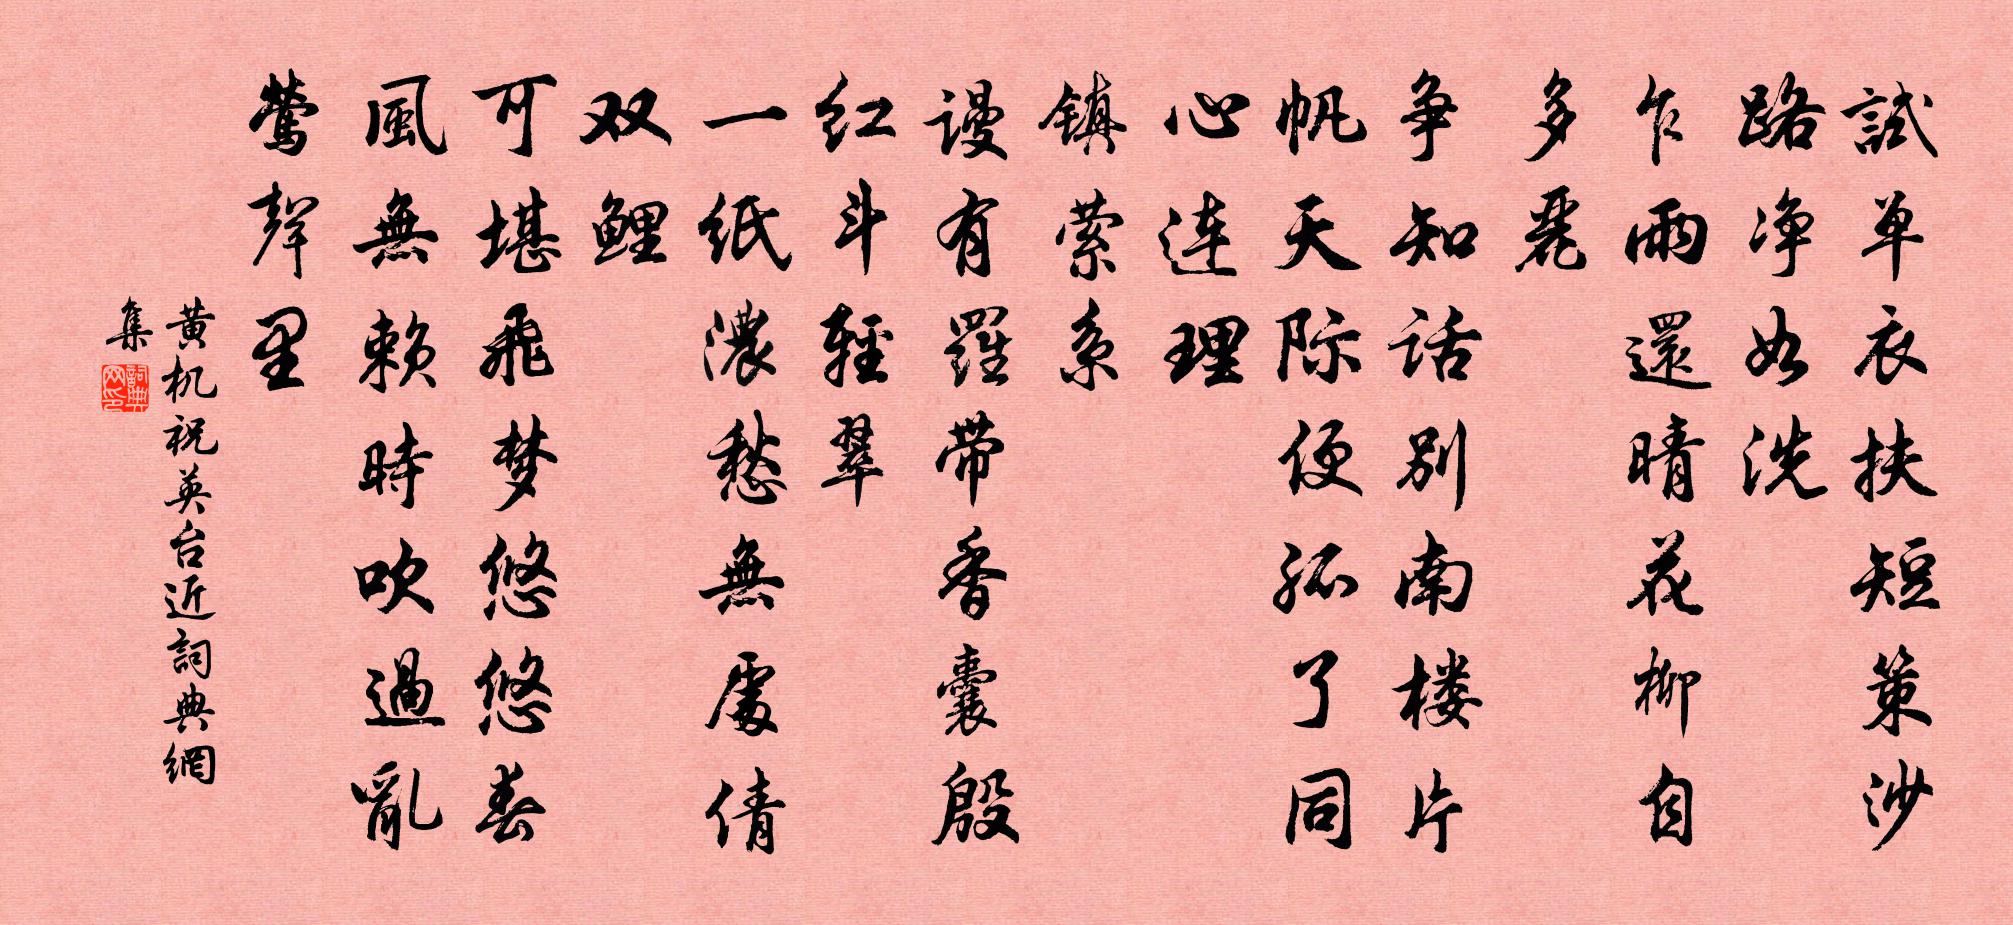 試单衣扶短策沙
路净如洗
乍雨還晴花柳自
多麗
争知话别南楼片
帆天际便孤了同
心连理
镇萦系
谩有羅带香囊殷
红斗輕翠
一纸濃愁無處倩
双鲤
可堪飛梦悠悠春
風無赖時吹過亂
莺聲里
黄机祝英台近詞典網
集
詞典網印